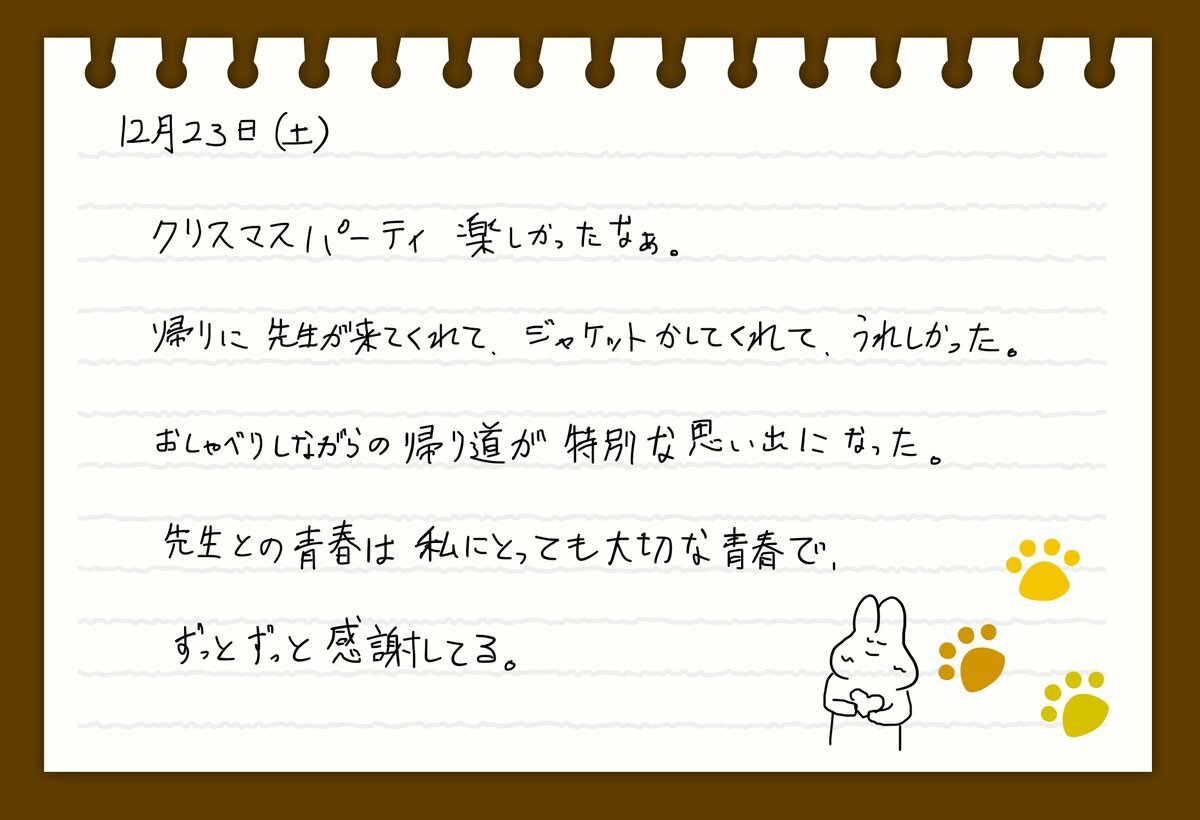 12月23日(土)
クリスマスパーティ 楽しかったなぁ。
帰りに 先生が来てくれて、ジャケットかしてくれて、うれしかった。
おしゃべりしながらの帰り道が 特別な思い出になった。
先生との青春は 私にとっても大切な青春で、
ずっとずっと感謝してる。